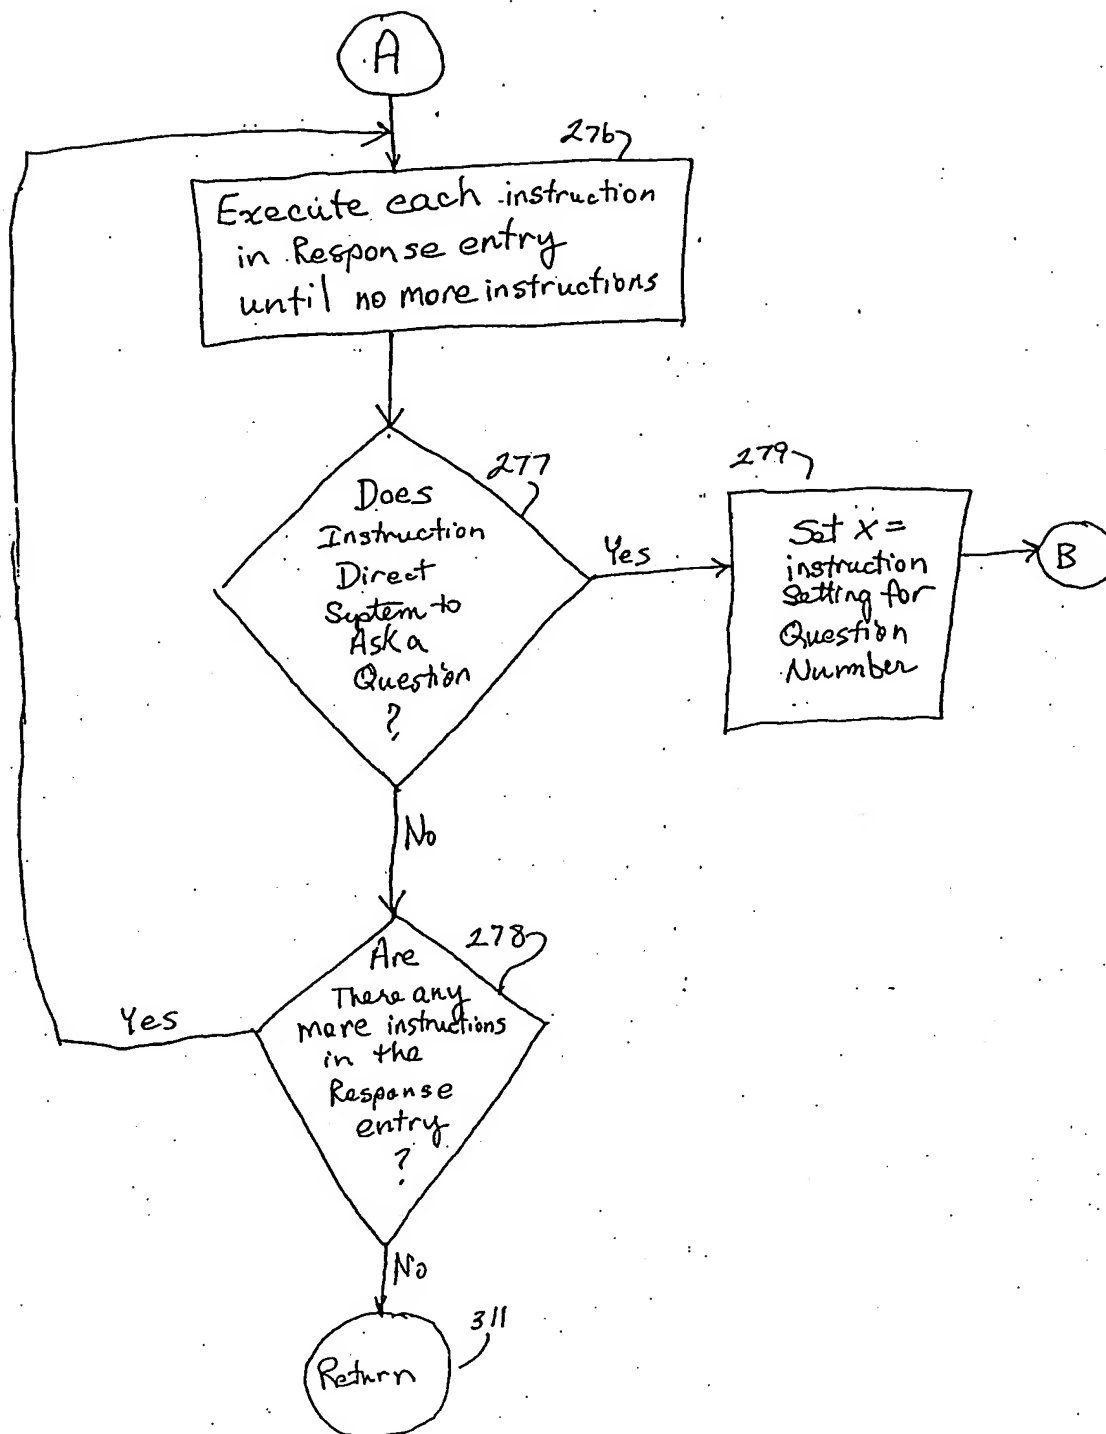 A
276
Execute each instruction
in Response entry
until no more instructions
277
Does
Instruction
Direct
System to
Ask a
Question
?
Yes
279
Set X =
instruction
Setting for
Question
Number
B
No
278
Are
There any
more instructions
in the
Response
entry
?
Yes
No
311
Return